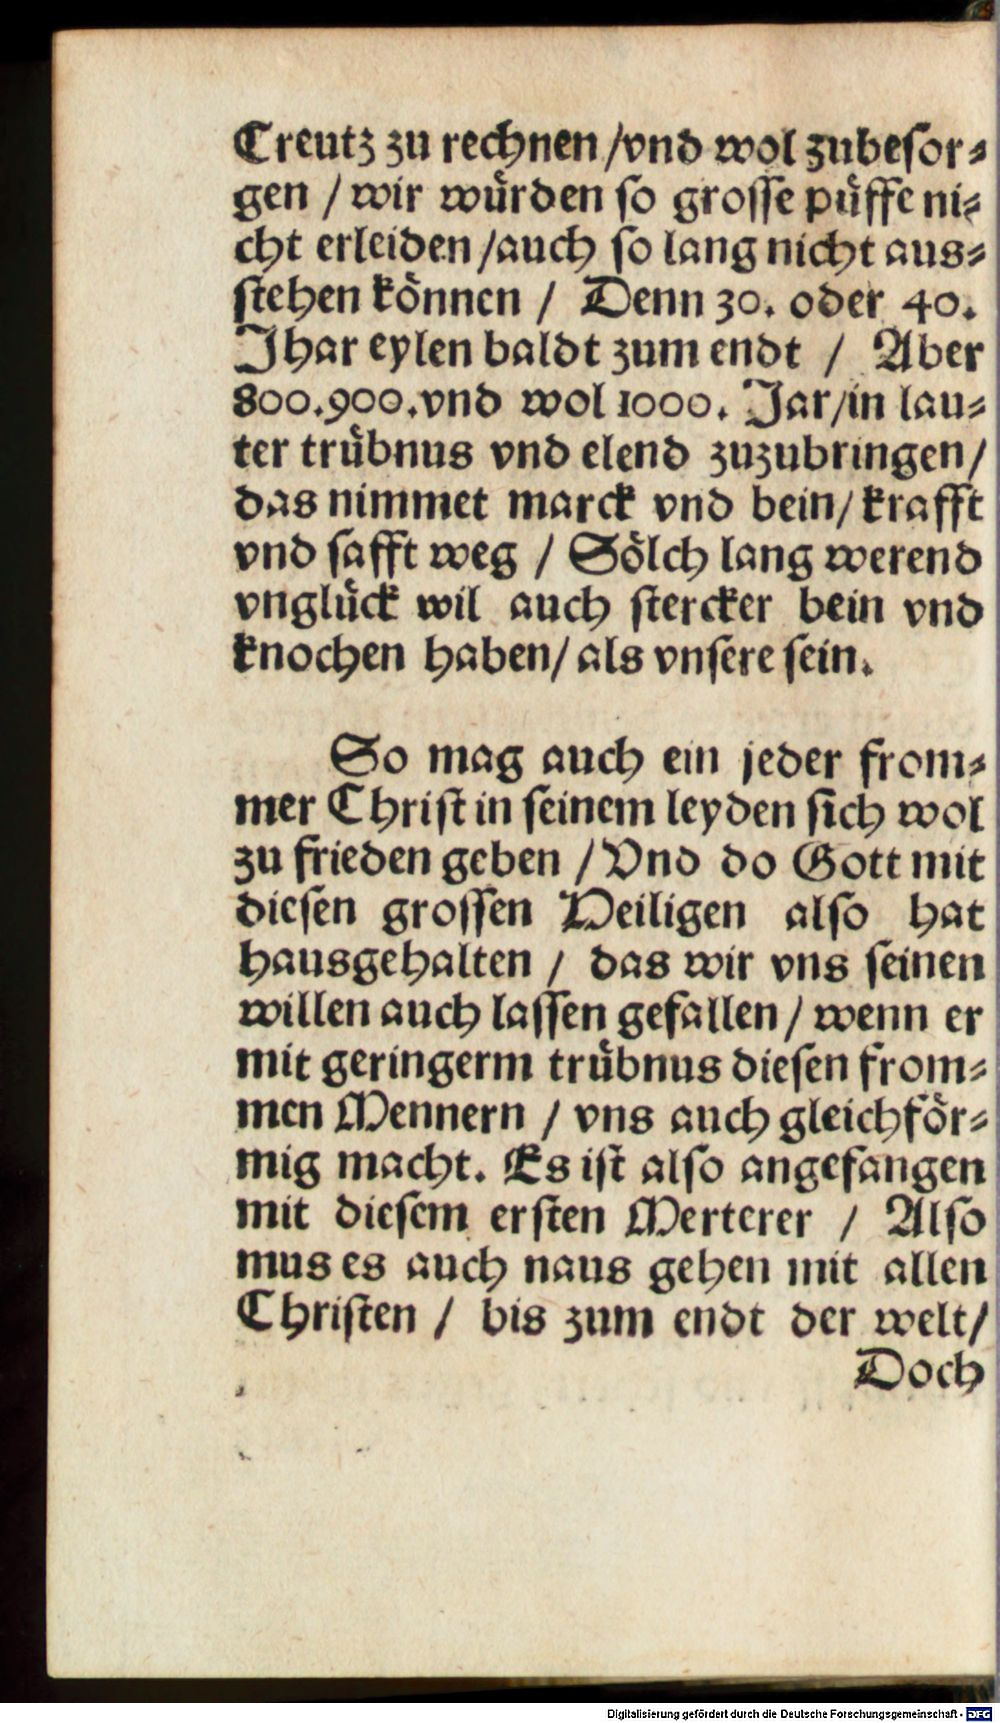 Creutz zu rechnen /vnd wol zubesor⸗
gen / wir wuͤrden so grosse puͤffe ni⸗
cht erleiden /auch so lang nicht aus⸗
stehen koͤnnen / Denn 30. oder 40.
Jhar eylen baldt zum endt / Aber
800.900.vnd wol 1000. Jar/in lau⸗
ter truͤbnus vnd elend zuzubringen/
das nimmet marck vnd bein/ krafft
vnd safft weg / Soͤlch lang werend
vngluͤck wil auch stercker bein vnd
knochen haben/ als vnsere sein.

So mag auch ein jeder from⸗
mer Christ in seinem leyden sich wol
zu frieden geben / Vnd do Gott mit
diesen grossen Heiligen also hat
hausgehalten / das wir vns seinen
willen auch lassen gefallen / wenn er
mit geringerm truͤbnus diesen from⸗
men Mennern / vns auch gleichfoͤr⸗
mig macht. Es ist also angefangen
mit diesem ersten Merterer / Also
mus es auch naus gehen mit allen
Christen / bis zum endt der welt/
Doch
Digitalisierung gefördert durch die Deutsche Forschungsgemeinschaft - DFG